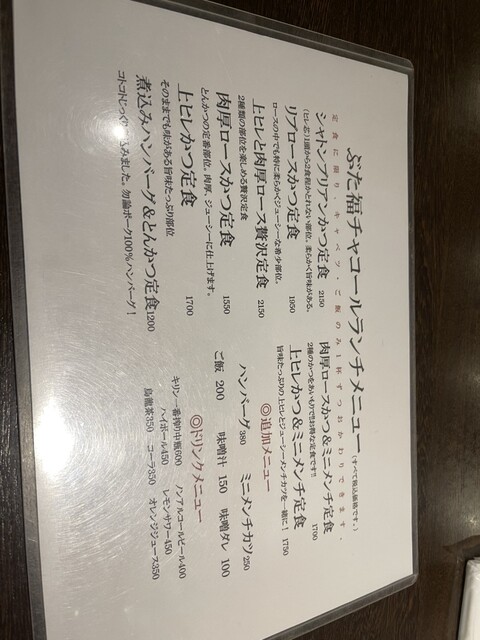 ぶた福チャコールランチメニュー（すべて税込価格です。）
定食に限り・キャベツ・ご飯のみ1杯ずつおかわりできます。
シャトンブリアンかつ定食 2150
（ヒレ芯）1頭から2食程かとれない部位。柔らかく旨味がある。
リブロースかつ定食 1950
ロースの中でも特に柔らかくジューシーな希少部位。
上ヒレと肉厚ロース贅沢定食 2150
2種類の部位を楽しめる贅沢定食
肉厚ロースかつ定食 1550
とんかつの定番部位。肉厚、ジューシーに仕上げます。
上ヒレかつ定食 1700
そのままでも味がある旨味たっぷり部位
煮込みハンバーグ&とんかつ定食1200
コトコトじっくり煮込みました。勿論ポーク100％ハンバーグ！
肉厚ロースかつ&ミニメンチ定食 1700
2種のかつをあいもりで!!お得な定食です!!
上ヒレかつ&ミニメンチ定食 1750
旨味たっぷりの上ヒレとジューシーメンチカツを一緒に！
◎追加メニュー
ハンバーグ380 ミニメンチカツ250
ご飯 200 味噌汁 150 味噌ダレ 100
◎ドリンクメニュー
キリン一番搾り中瓶600 ノンアルコールビール400
ハイボール450 レモンサワー450
烏龍茶350 コーラ350 オレンジジュース350